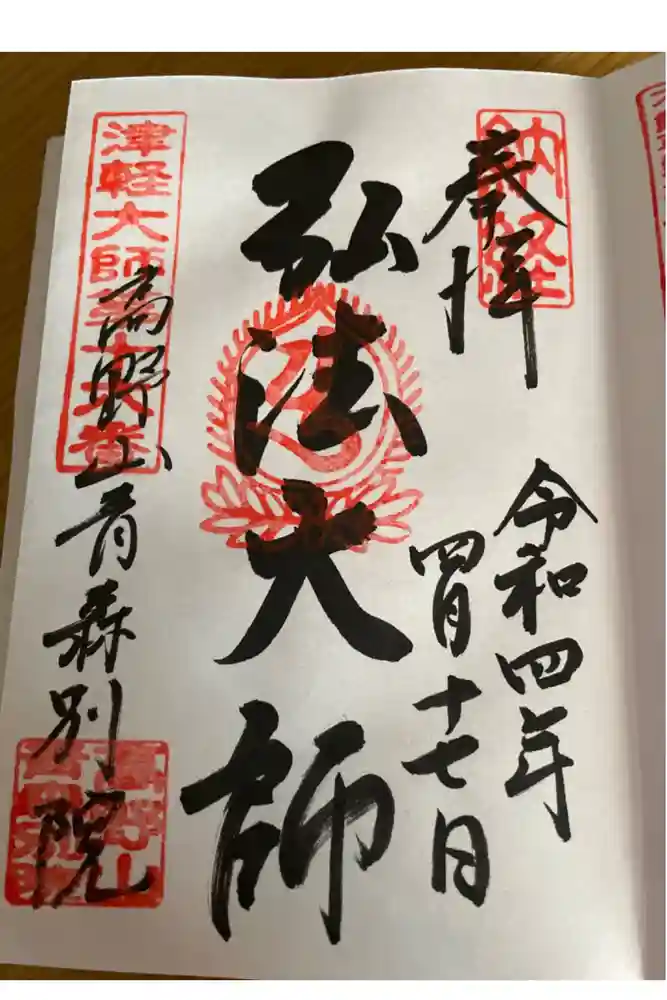 奉拝
納経
令和四年
四月十七日
弘法大師
津軽大師第
高野山青森別院